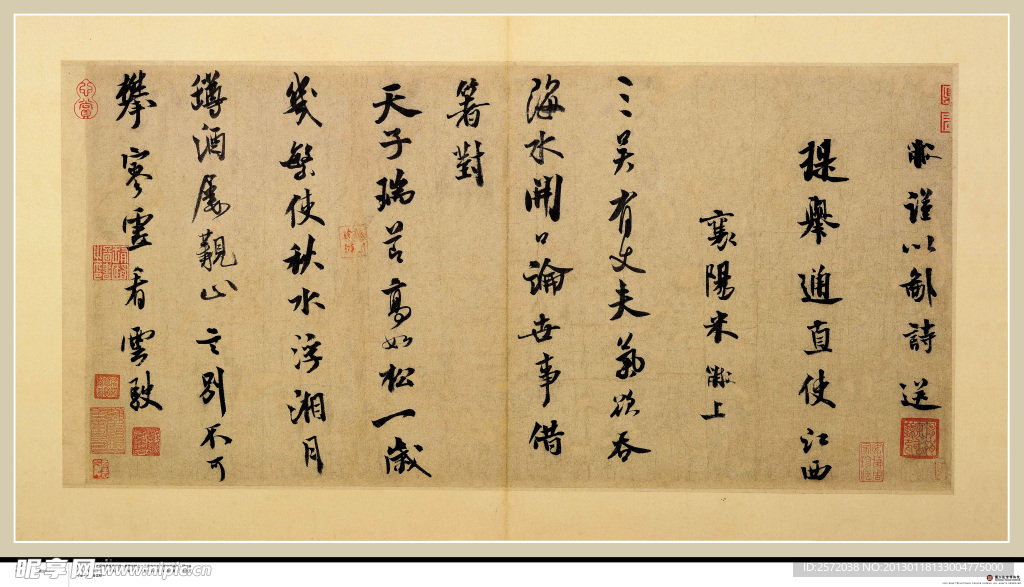 黻謹以鄙詩送
提舉通直使江西
襄陽米黻上
三吳有丈夫氣欲吞
海水開口論世事借
箸對
天子瑞節高如松一歲
幾繁使秋水浮湘月
鐏酒屢覯止言別不可
攀寥看雲駛
昵享网 www.nipic.cn
ID:2572038 NO:20130118133004775000